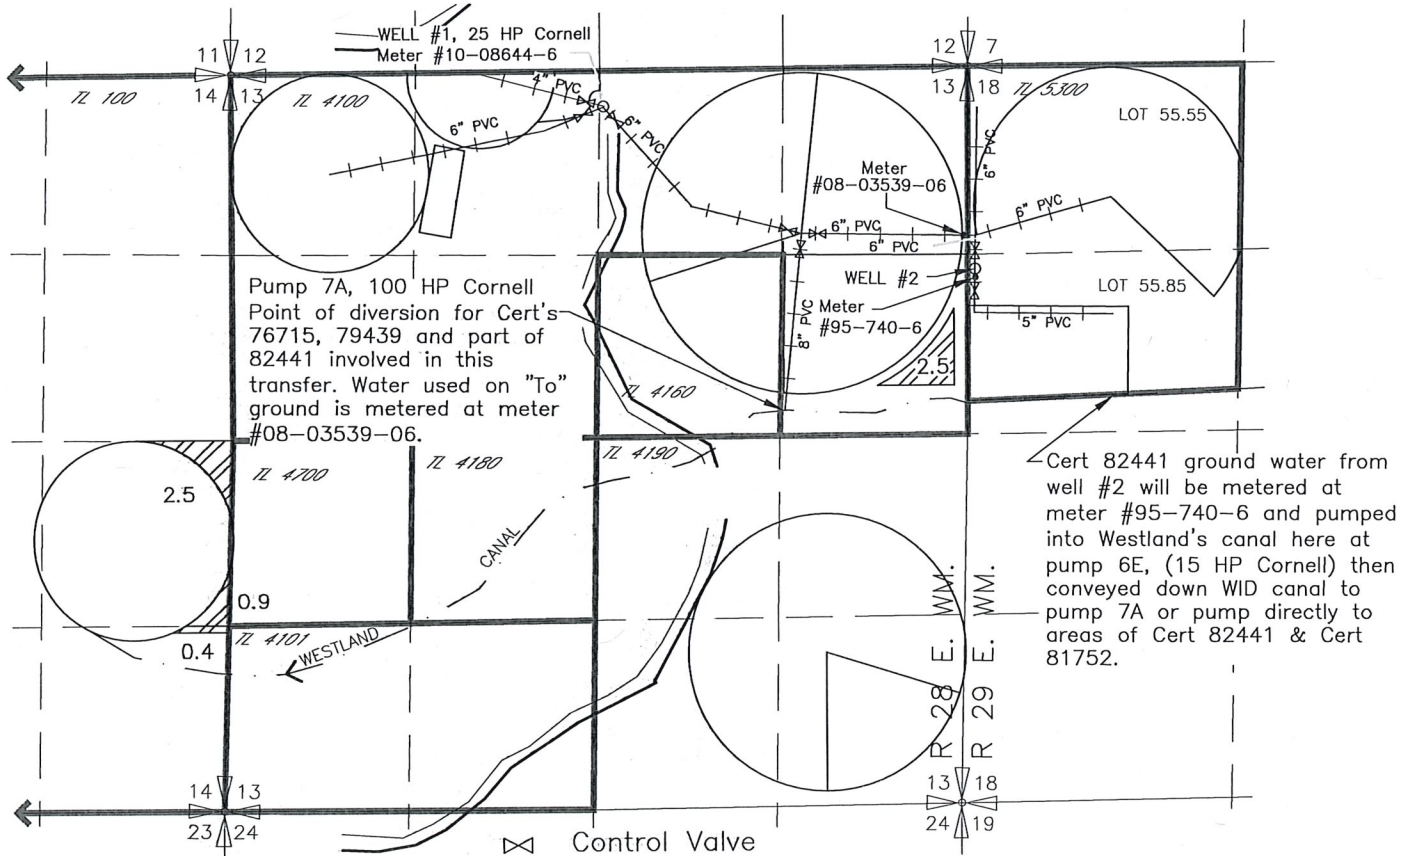 WELL #1, 25 HP Cornell
Meter #10-08644-6
11 12
14 13
12 7
13 18
TL 100
TL 4100
4" PVC
6" PVC
6" PVC
TL 5300
LOT 55.55
6" PVC
Meter
#08-03539-06
6" PVC
6" PVC
6" PVC
WELL #2
LOT 55.85
Meter
#95-740-6
8" PVC
5" PVC
2.5
Pump 7A, 100 HP Cornell
Point of diversion for Cert's
76715, 79439 and part of
82441 involved in this
transfer. Water used on "To"
ground is metered at meter
#08-03539-06.
TL 4160
TL 4700
TL 4180
TL 4190
2.5
CANAL
Cert 82441 ground water from
well #2 will be metered at
meter #95-740-6 and pumped
into Westland's canal here at
pump 6E, (15 HP Cornell) then
conveyed down WID canal to
pump 7A or pump directly to
areas of Cert 82441 & Cert
81752.
0.9
TL 4101
0.4
WESTLAND
R 28 E. WM.
R 29 E. WM.
14 13
23 24
13 18
24 19
Control Valve